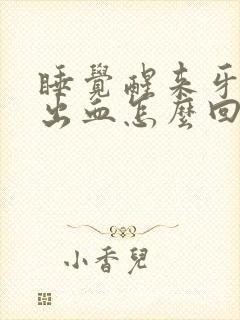 睡覺醒來牙
出血怎麼回
小香兒